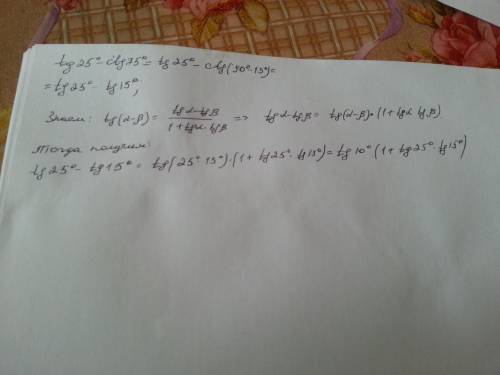 tg 25° - ctg 75° = tg 25° - ctg(90°-15°) =
= tg 25° - tg 15°;
Знаем: tg(α-β) = (tgα-tgβ)/(1+tgα·tgβ) => tgα-tgβ = tg(α-β)·(1+tgα·tgβ)
Тогда получим:
tg 25° - tg 15° = tg(25°-15°)·(1+tg25°·tg15°) = tg 10° (1+tg25°·tg15°)